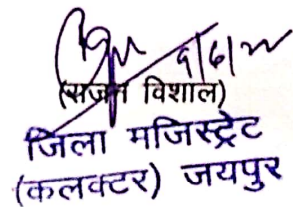 9/6/22
(राजन विशाल)
जिला मजिस्ट्रेट
(कलक्टर) जयपुर